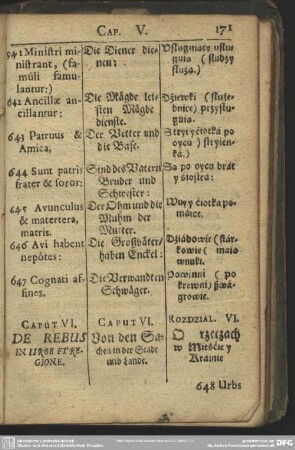 CAP. V. 171
641 Ministri mi-
nistrant, (fa-
muli famu-
lantur:)
642 Ancillæ an-
cillantur:
643 Patruus &
Amica,
644 Sunt patris
frater & soror:
645 Avunculus
& matertera,
matris.
646 Avi habent
nepôtes:
647 Cognati af-
fines.
CAPUT VI.
DE REBUS
IN URBE ET RE-
GIONE.
Die Diener die-
nen:
Die Mägde lei-
sten Mägde
dienste.
Der Vetter und
die Base.
Sind des Vatern
Bruder und
Schwester:
Der Ohm und die
Muhm der
Mutter.
Die Großväter
haben Enckel:
Die Verwandten
Schwäger.
CAPUT VI.
Von den Sa-
chen in der Stadt
und Lande.
Usługuiący usłu-
guią (słudzy
służą.)
Dziewki (służe-
bnice) przysłu-
guią.
Stryi y ćiotka po
oycu) stryien-
ka.)
Są po oycu brát
y śiostrá:
Wuy y ćiotka po
mátce.
Dźiádowie (stár-
kowie) máią
wnuki.
Powinni (po
krewni) szwá-
growie.
ROZDZIAL. VI.
O rzeczách
w Mieśćie y
Kráinie
648 Urbs